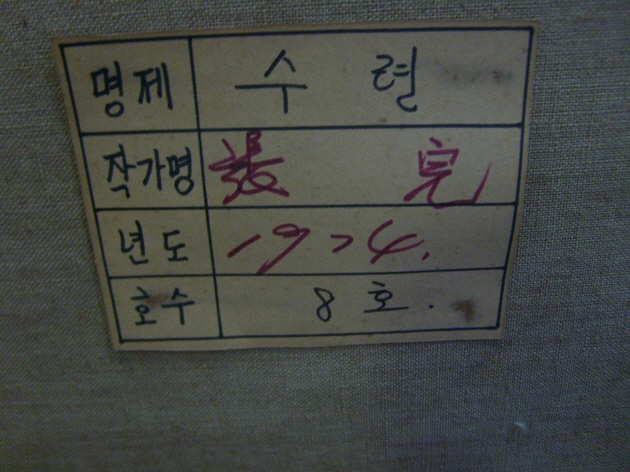 명제 수련
작가명 張 完
년도 1974.
호수 8호.